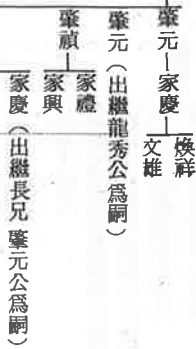 肇元—家慶
煥祥
文雄
肇元（出繼龍秀公爲嗣）
肇禎
家禮
家興
家慶（出繼長兄 肇元公爲嗣）